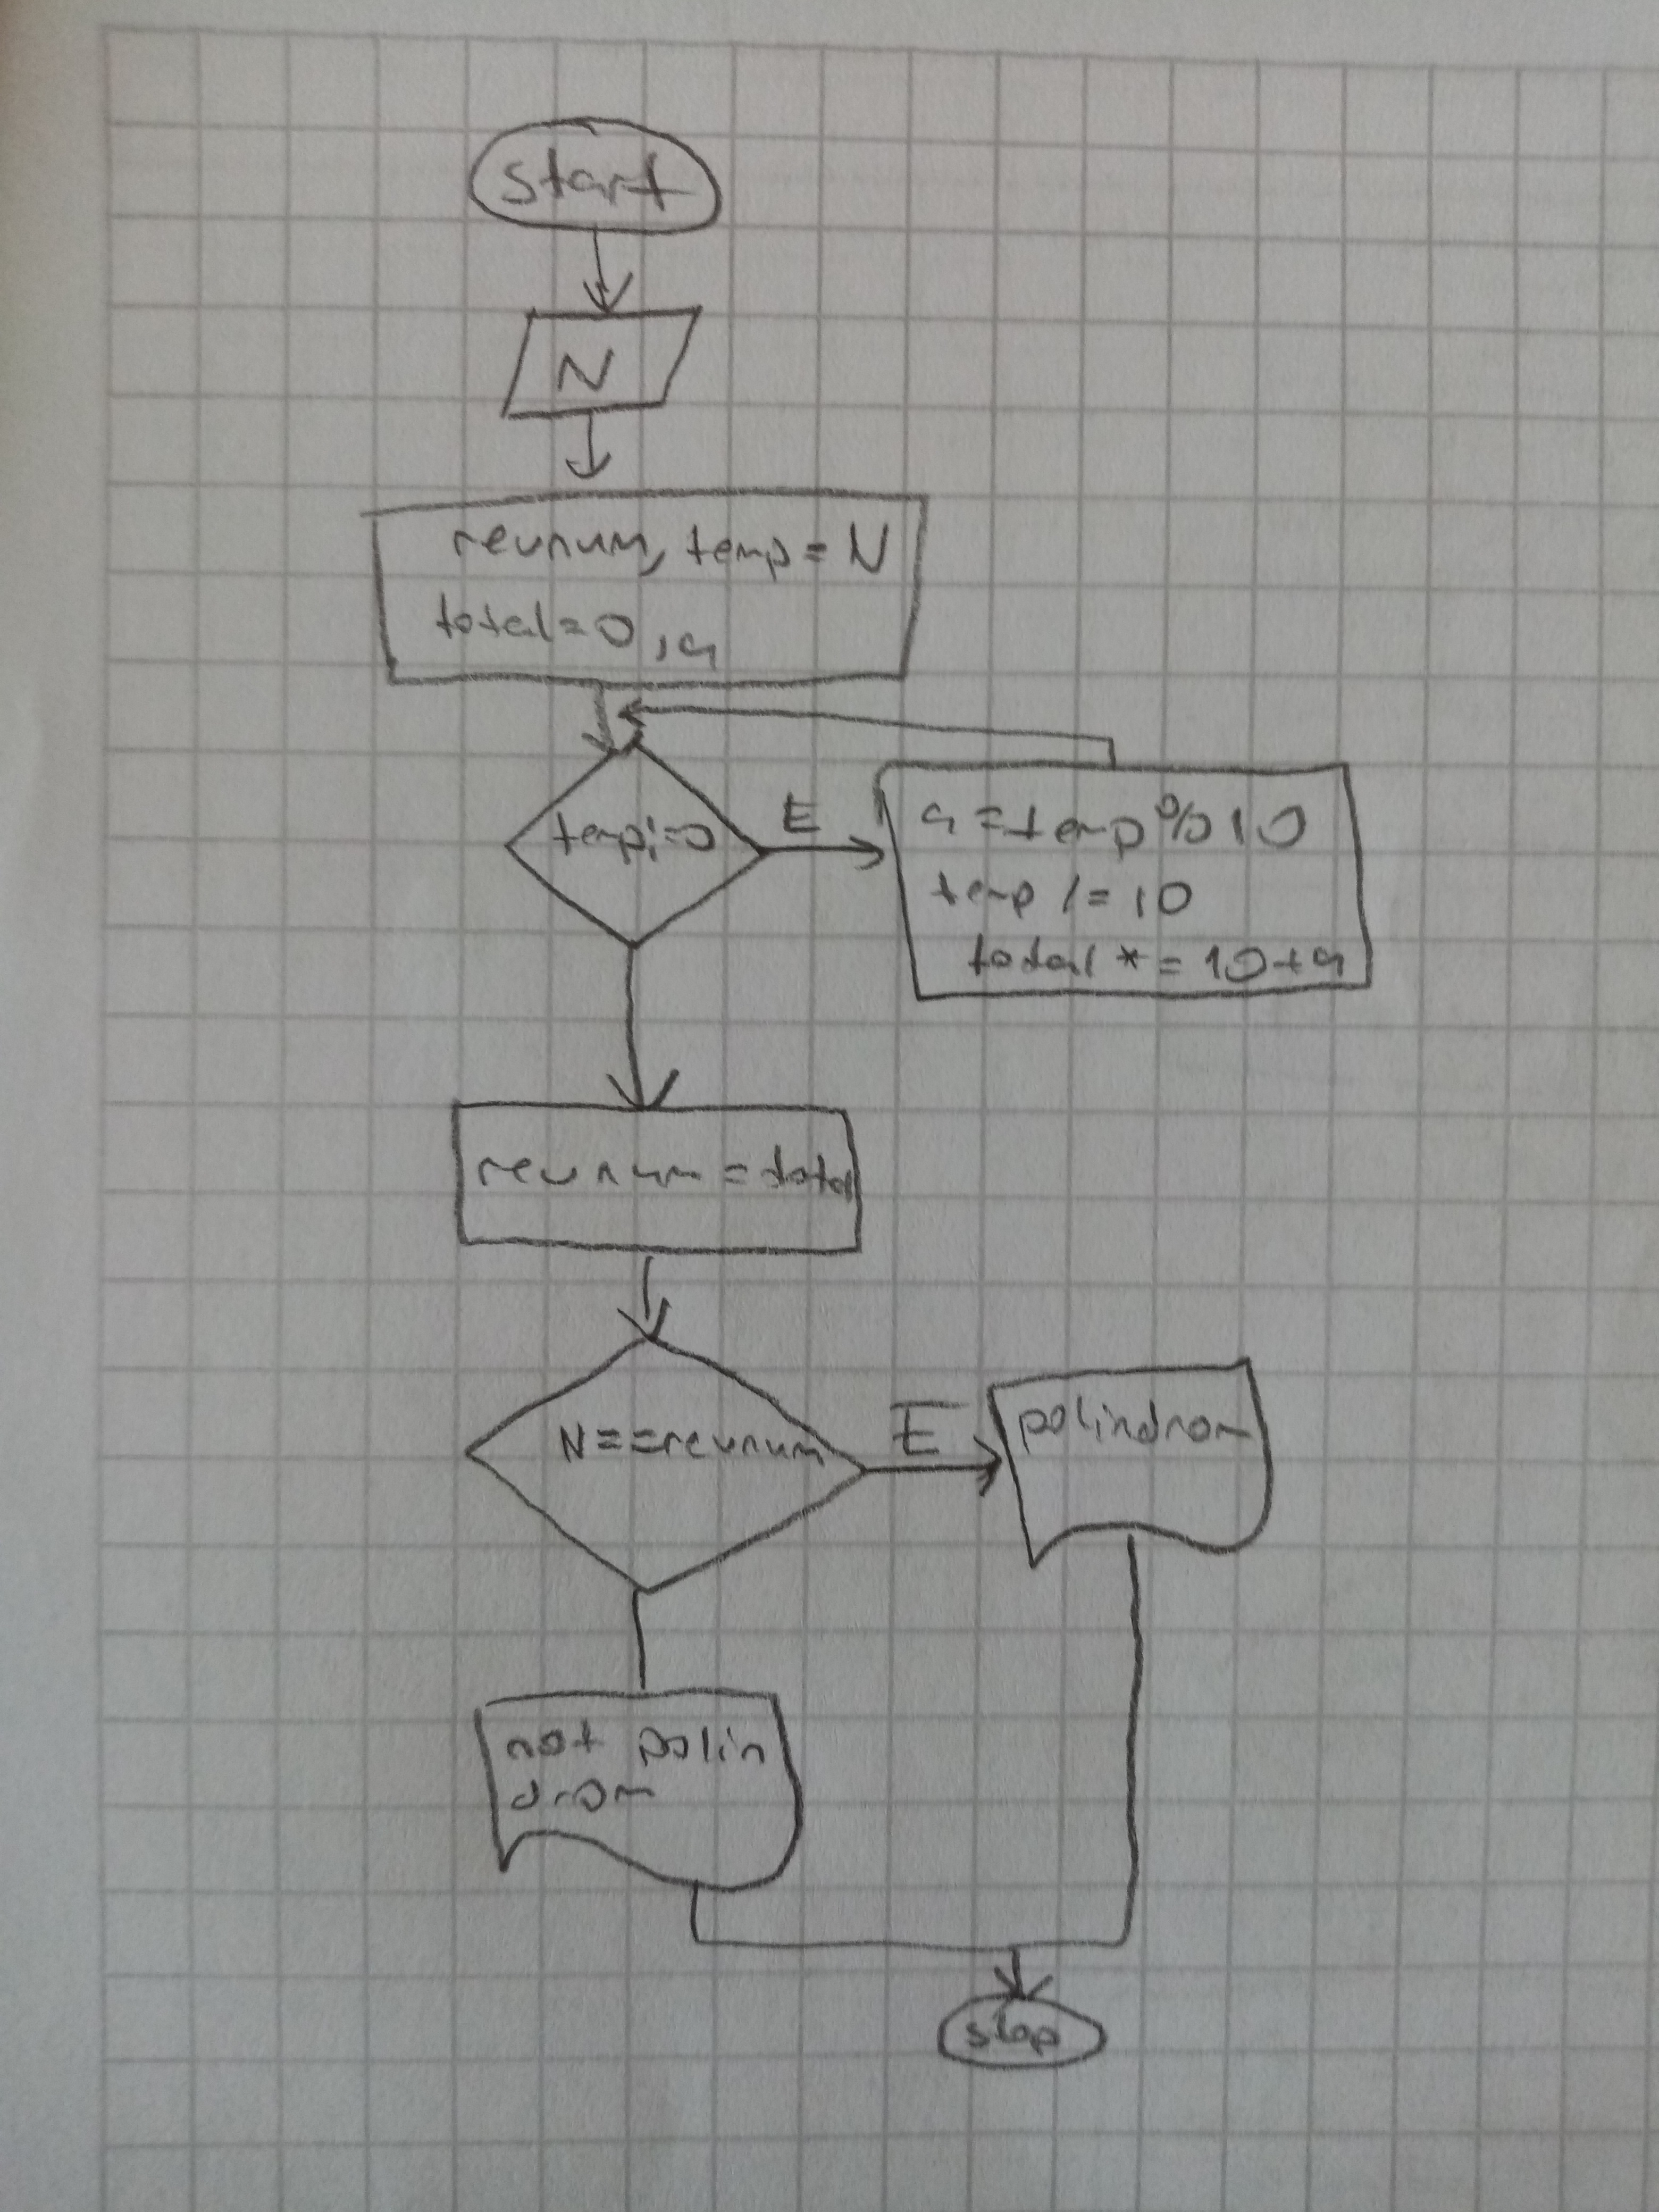 start
N
revnum, temp = N
total = 0, a
temp != 0
E
a = temp % 10
temp /= 10
total *= 10 + a
revnum = total
N == revnum
E
polindrom
not polin
drom
stop